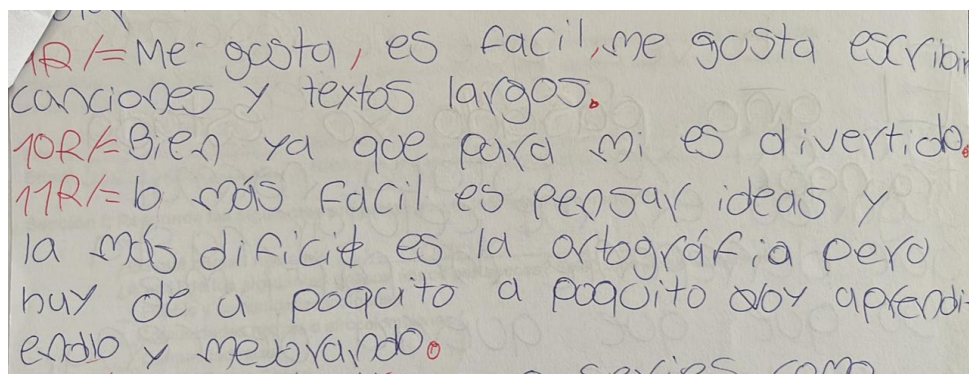 1R/= Me gusta, es facil, me gusta escribir
canciones y textos largos.
10R/= Bien ya que para mi es divertido.
11R/= lo más facil es pensar ideas y
la más dificil es la ortográfia pero
muy de a poquito a poquito voy aprendi-
endo y mejorando.
series como